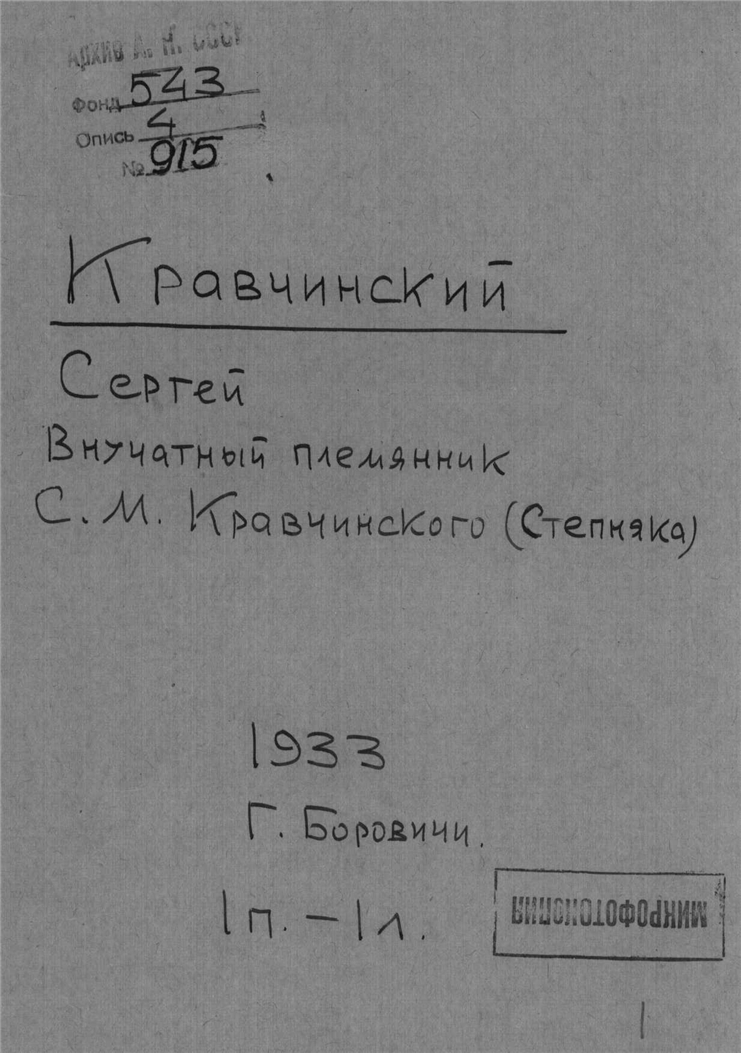 Архив А. Н. СССР
Фонд 543
Опись 4
№ 915
Кравчинский
Сергей
Внучатный племянник
С. М. Кравчинского (Степняка)
1933
Г. Боровичи.
1 п. – 1 л.
МИКРОФОТОКОПИЯ
1